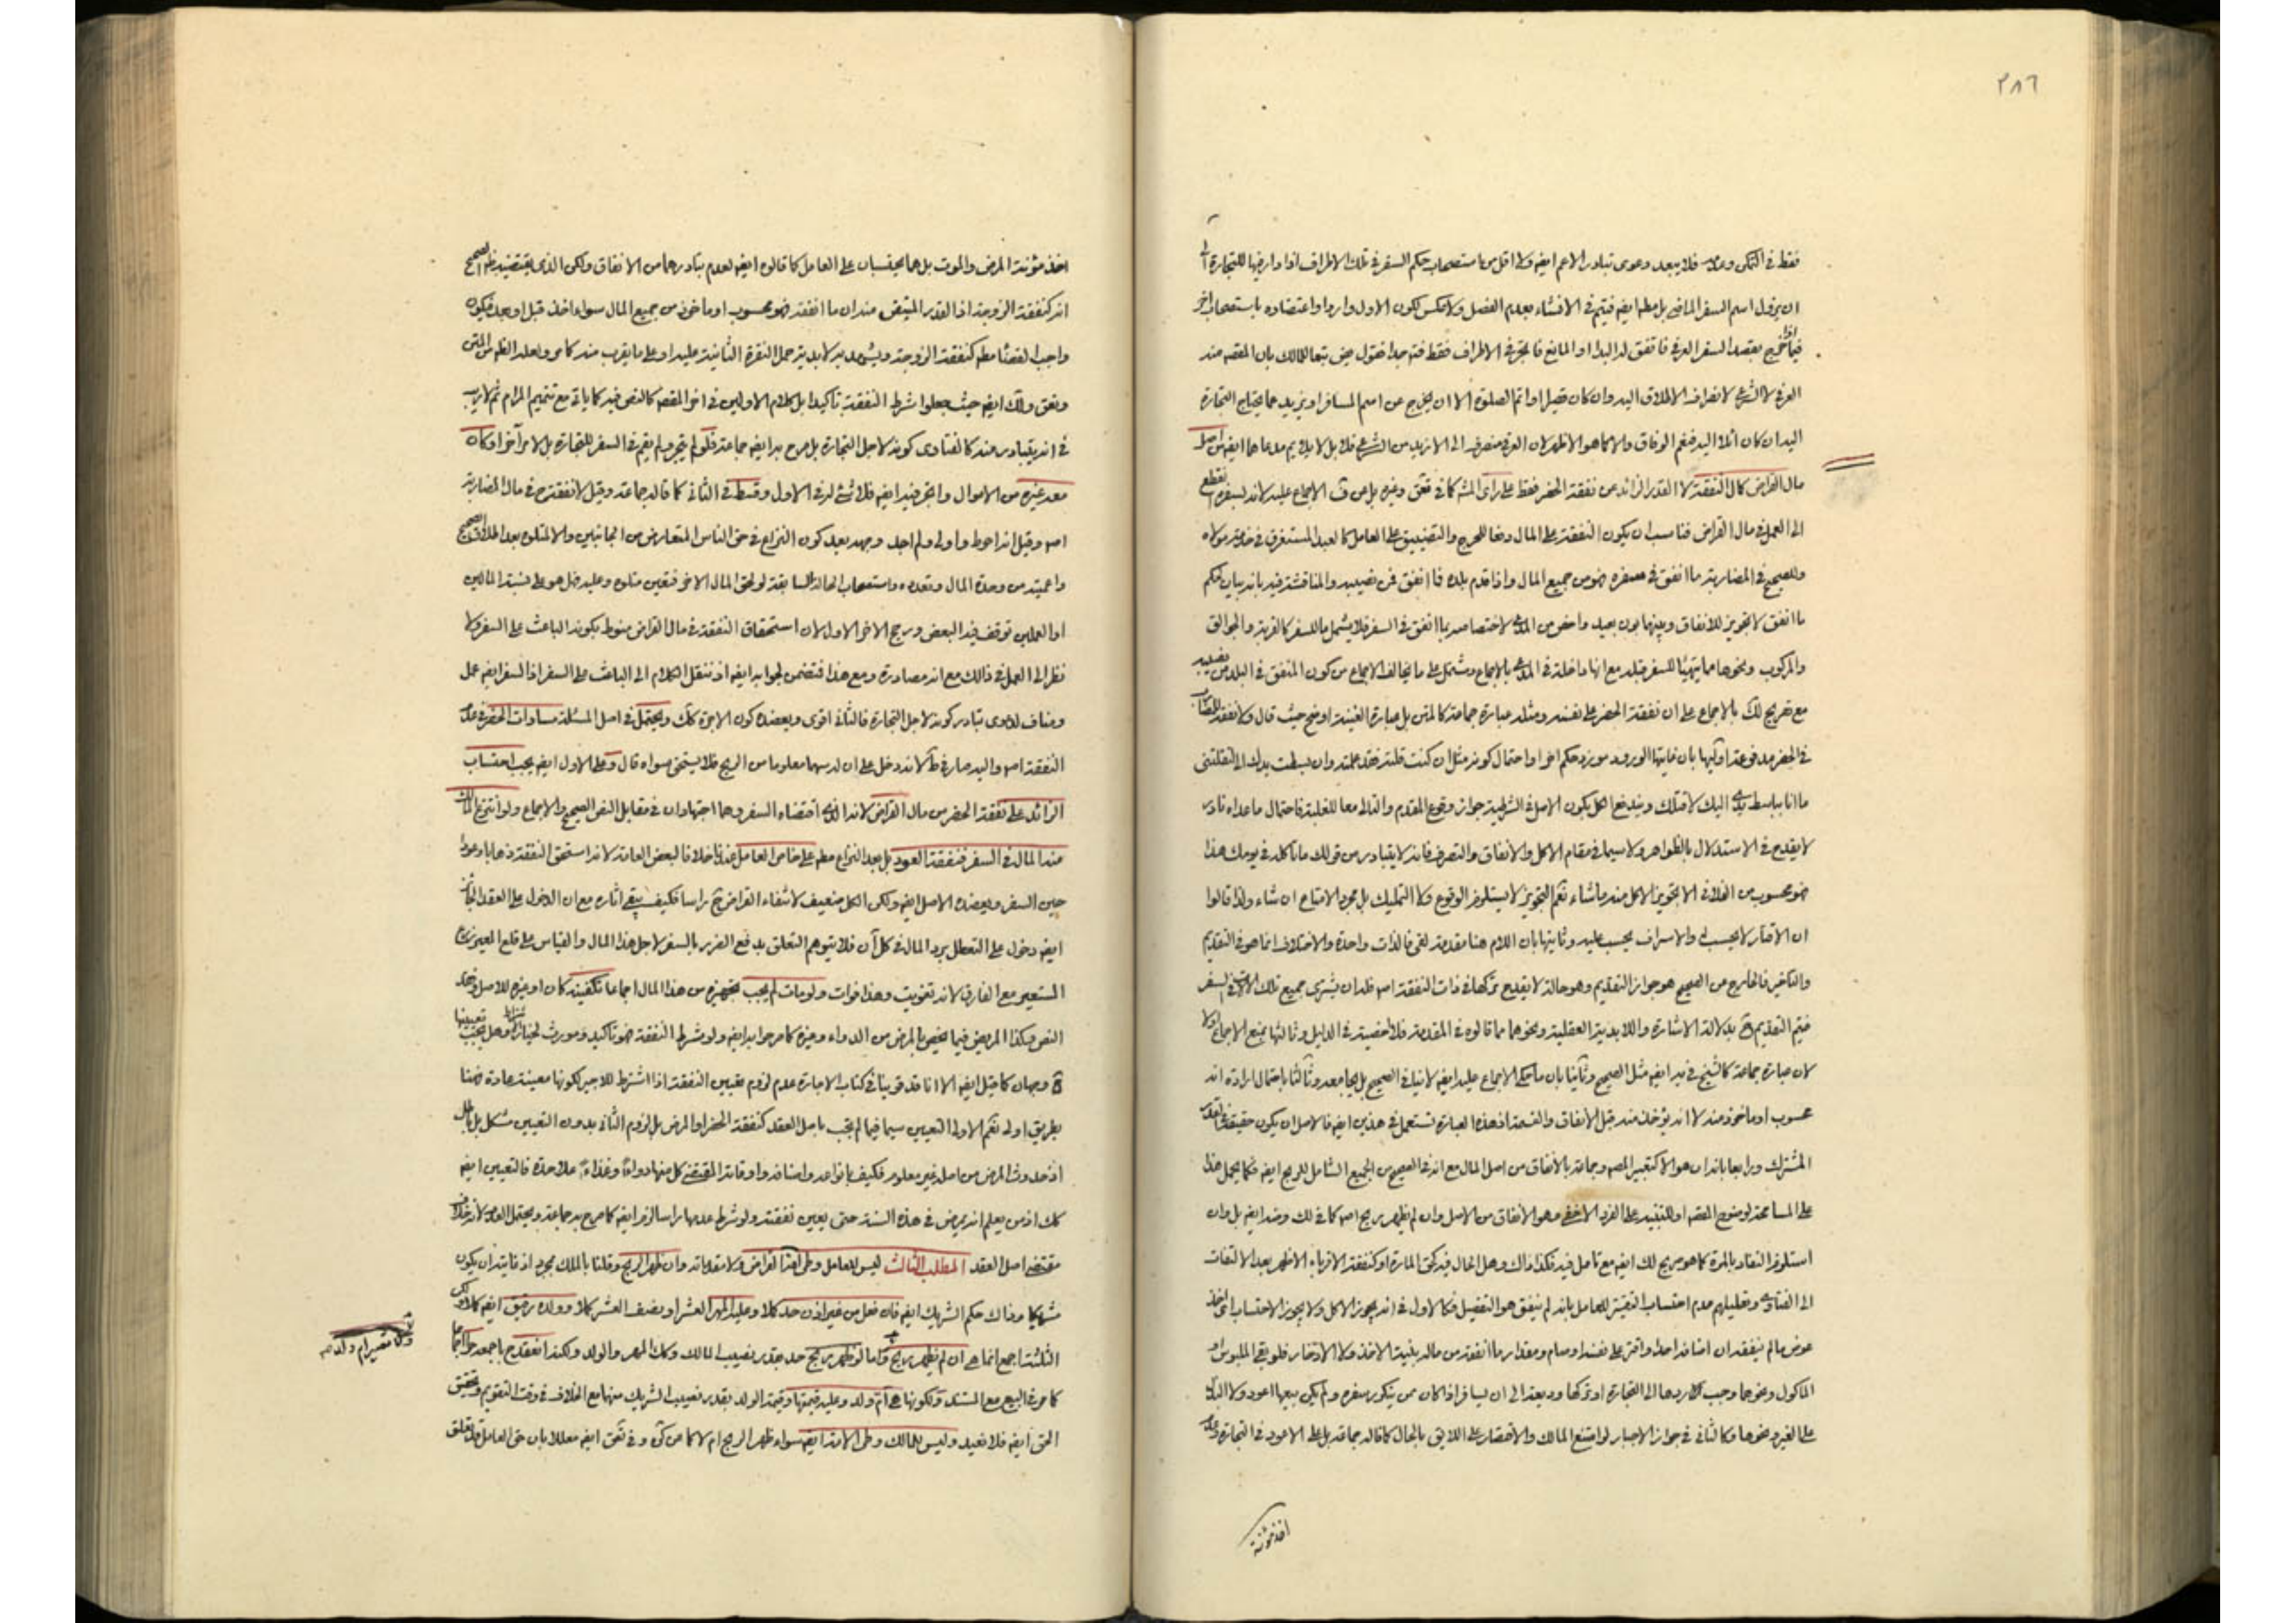 ٣٨٦
فقط في التمكن وعدمه فلا يبعد دعوى تبادر الاعم ايضه ولا اقل من استصحاب حكم السفر في تلك الاطراف اذا دار فيها للتجارة الى
ان يزول اسم السفر الماضي بل مطلم ايضه فيتم في الانشاء بعدم الفصل ولا عكس لكون الاول واردا واعتضاده باستصحاب اخر
فيما اذا خرج بقصد السفر العرفي فاتفق له البدا او المانع فاتجر في الاطراف فقط
العرفي لا الشرعي لانصراف الاطلاق اليه وان كان قصيرا او اتم الصلوة الا ان يخرج عن اسم المسافر او يزيد عما يحتاج التجارة
اليه ان كان
مال القراض كمال النفقة لا القدر الزائد عن نفقة الحضر فقط على راى
الى العمل في مال القراض فناسب ان يكون النفقة على المال دفعا للحرج والتضييق على العامل كالعبد المستغرق في خدمة مولاه
وللصحيح في المضاربة ما انفق في سفره فهو من جميع المال واذا قدم بلده فما انفق فمن نصيبه والمناقشة فيه بانه بيان حكم
ما انفق لا تجويز للانفاق وبينهما بون بعيد واخص من المدعى لاختصاصه بما انفق في السفر فلا يشمل ما للسفر كالقربة والجوالق
والمركوب ونحوها مما يتهيأ للسفر قبله مع انها داخلة في المدعى بالاجماع ومشتمل على ما يخالف الاجماع من كون المنفق في البلد من نصيبه
مع تصريح لك بالاجماع على ان نفقة الحضر على نفسه ومثله عبارة جماعة كالمتن بل عبارة الغنية اوضح حيث قال ولا نفقة للمضارب
في الحضر مدفوعة اوليها بان غايتها الورود مورد حكم اخر او احتمال كونه مثل ان كنت قلته فقد علمته وان بسطت يدك الى لتقتلني
ما انا بباسط يدي اليك لاقتلك ويندفع الكل بكون الاصل في الشرطية جواز وقوع المقدم والتالي معا للغلبة فاحتمال ما عداه نادر
لا يقدح في الاستدلال بالظواهر ولا سيما في مقام الاكل والانفاق والتصرف فانه لا يتبادر من قولك ما تاكله في يومك هذا
فهو محسوب من الفلاني الا تجويز الاكل منه ما شاء نعم التجويز لا يستلزم الوقوع ولا التمليك بل مجرد الامتاع ان شاء ولذا قالوا
ان الاقتار لا يحسب له والاسراف يحسب عليه وثانيتها بان اللازم هنا مقدمة لغى فالذات واحدة والاختلاف انما هو في التقديم
والتاخير فالخارج من الصحيح هو جواز التقديم وهو حالة لا يقدح تركها في ذات النفقة اصه فله ان يشترى جميع تلك الالات في السفر
فيتم التقديم ح بدلالة الاشارة واللابدية العقلية ونحوهما مما قالوه في المقدمة فلا اخصية في الدليل وثالثها بمنع الاجماع اولا
لان عبارة جماعة كالشيخ في يه ايضه مثل الصحيح وثانيا بان ما حكى الاجماع عليه ايضه لا ينافي الصحيح بل يجامعه وثالثا باحتمال ارادة انه
محسوب او ماخوذ منه لا انه يؤخذ منه قبل الانفاق والقسمة اذ هذه العبارة تستعمل في هذين ايضه فالاصل ان يكون حقيقة في القدر
المشترك ورابعا بانه ان هو الا كتعبير المصه وجماعة بالانفاق من اصل المال مع انه في الصحيح من الجميع الشامل للربح ايضه فكما يحمل هذا
على المسامحة لوضوح المقصد او للتنبيه على الفرد الاخفى وهو الانفاق من الاصل وان لم يظهر ربح اصه كما في لك وضه ايضه بل وان
استلزم النفاد بالمرة كما هو صريح لك ايضه مع تامل فيه فكذا ذاك وهل الحال فيه كحق المارة او كنفقة الاقرباء الاظهر بعد الالتفات
الى الفتاوى وتعليلهم عدم احتساب التقتير للعامل بانه لم ينفق هو التفصيل فكالاول في انه يجوز الاكل ولا يجوز الاحتساب اى اخذ
عوض ما لم ينفقه ان اضافه احد او اقتر على نفسه او صام ومقدار ما انفقه من ماله بنية الاخذ ولا الادخار فلو بقي الملبوس او
الماكول ونحوهما وجب ردها الى التجارة او تركها وديعة الى ان يسافر اذا كان ممن يتكرر سفره ولم يكن بيعها اعود ولا البذل
على الغير ونحوها وكالثاني في جواز الاجبار لو امتنع المالك والاقتصار على اللايق بالحال كما قاله جماعة بل على الاعود في التجارة وعدم
اخذ مؤنة
اخذ مؤنة المرض والموت بل هما يحتسبان على العامل كما قالوه ايضه لعدم تبادرهما من الانفاق ولكن الذي يقتضيه ظم الصحيح
انه كنفقة الزوجة اذ القدر المتيقن منه ان ما انفقه فهو محسوب او ماخوذ من جميع المال سواء اخذ قبل او بعد فيكون
واجب القضاء مطم كنفقة الزوجة ويشهد به لابدية حمل الفقرة الثانية عليه او على ما يقرب منه كما مر ولعله الظم من المتن
وتعق ولك ايضه حيث جعلوا شرط النفقة تاكيدا بل كلام الاولين في اخر المقصد كالنص فيه كما ياتي مع تتميم المرام ثم لا ريب
في انه يتبادر منه كالفتاوى كونه لاجل التجارة بل صرح به ايضه جماعة فلو لم يتجر ولم يقم في السفر للتجارة بل لامر آخر او كان
معه غيره من الاموال واتجر فيه ايضه فلا شئ له في الاول وقسط في الثاني كما قاله جماعة وقيل لا نفقة ح في مال المضاربة
اصه وقيل انه احوط واولى ولم اجد وجهه بعد كون النزاع في حق الناس المتعارض من الجانبين والا لمتلوه بعد اطلاق الصحيح
واعميته من وحدة المال وتعدده واستصحاب الحالة السابقة لو لحق المال الاخر فتعين متلوه وعليه فهل هو على نسبة المالين
او العملين توقف فيه البعض ورجح الاخر الاول لان استحقاق النفقة في مال القراض منوط بكونه الباعث على السفر ولا
نظر الى العمل في ذلك مع انه مصادرة ومع هذا فتضمن لجوابه ايضه اذ ننقل الكلام الى الباعث على السفر اذ السفر ايضه عمل
ومناف لدعوى تبادر كونه لاجل التجارة فالثاني اقوى ويعضده كون الاجرة كلك ويحتمل في اصل المسئلة مساوات الحضر في عدم
النفقة اصه واليه صار في ط لانه دخل على ان له سهما معلوما من الربح فلا يستحق سواه قال وعلى الاول ايضه يجب احتساب
الزائد على نفقة الحضر من مال القراض لانه الذي اقتضاه السفر وهما اجتهادان في مقابل النص الصحيح والاجماع ولو انتزع المالك
منه المال في السفر فنفقة العود بل بعد النزاع مطم على خاص العامل عندنا خلافا لبعض العامة لانه استحق النفقة ذهابا وعودا
حين السفر ويعضده الاصل ايضه ولكن الكل ضعيف لانتفاء القراض ح راسا فكيف يبقى آثاره مع ان الدخول على العقد الجائز
ايضه دخول على التعطل برد المال في كل آن فلا يتوهم التعلق بدفع الضرر بالسفر لاجل هذا المال والقياس على قلع المعير زرع
المستعير مع الفارق لانه تفويت وهذا فوات ولو مات لم يجب تجهيزه من هذا المال اجماعا تكفينه كان او غيره للاصل وعدم
النص فكذا المريض فيما يخص بالمرض من الدواء وغيره كما صرحوا به ايضه ولو شرط النفقة فهو تاكيد ومورث لخيار الاشتراط وهل يجب تعيينها
ح وجهان كما قيل ايضه الا انا قد قوينا في كتاب الاجارة عدم لزوم تعيين النفقة اذا اشترط للاجير لكونها معينة عادة فهنا
بطريق اولى نعم الاولى التعيين سيما فيما لم يجب باصل العقد كنفقة الحضر او المرض بل لزوم الثاني بدون التعيين مشكل بل باطل
اذ حدوث المرض من اصله غير معلوم فكيف بانواعه واصنافه واوقاته المقتضى كل منها دواءً وغذاءً علاحدة فالتعيين ايضه
كك اذ من يعلم انه يمرض في هذه السنة حتى يعين نفقته ولو شرط عدمها راسا لزم ايضه كما صرح به جماعة ويحتمل العدم لانه خلاف
مقتضى اصل العقد المطلب الثالث ليس للعامل وطى امة القراض ولا مقدماته وان ظهر الربح وقلنا بالملك بمجرده اذ غايته ان يكون
مشتركا وذاك حكم الشريك ايضه فان فعل من غير اذن حد كملا وعليه المهر العشر او نصف العشر كملا وولده رقيق ايضه كملا ولكن
الثلثة اجمع انما هي ان لم يظهر ربح واما لو ظهر ربح حد بقدر نصيب المالك وكك المهر والولد ولكنه انعقد ح باجمعه حرا اجماعا
كما مر في البيع مع السند ولكونها هي ام ولد وعليه قيمتها وقيمة الولد بقدر نصيب الشريك منهما مع الخلاف في وقت التقويم وتحقيق
الحق ايضه فلا نعيد وليس للمالك وطى الامة ايضه سواء ظهر الربح ام لا كما عن كره وفي تعق ايضه معللا بان حق العامل قد تعلق
ولا تصير ام ولد صه